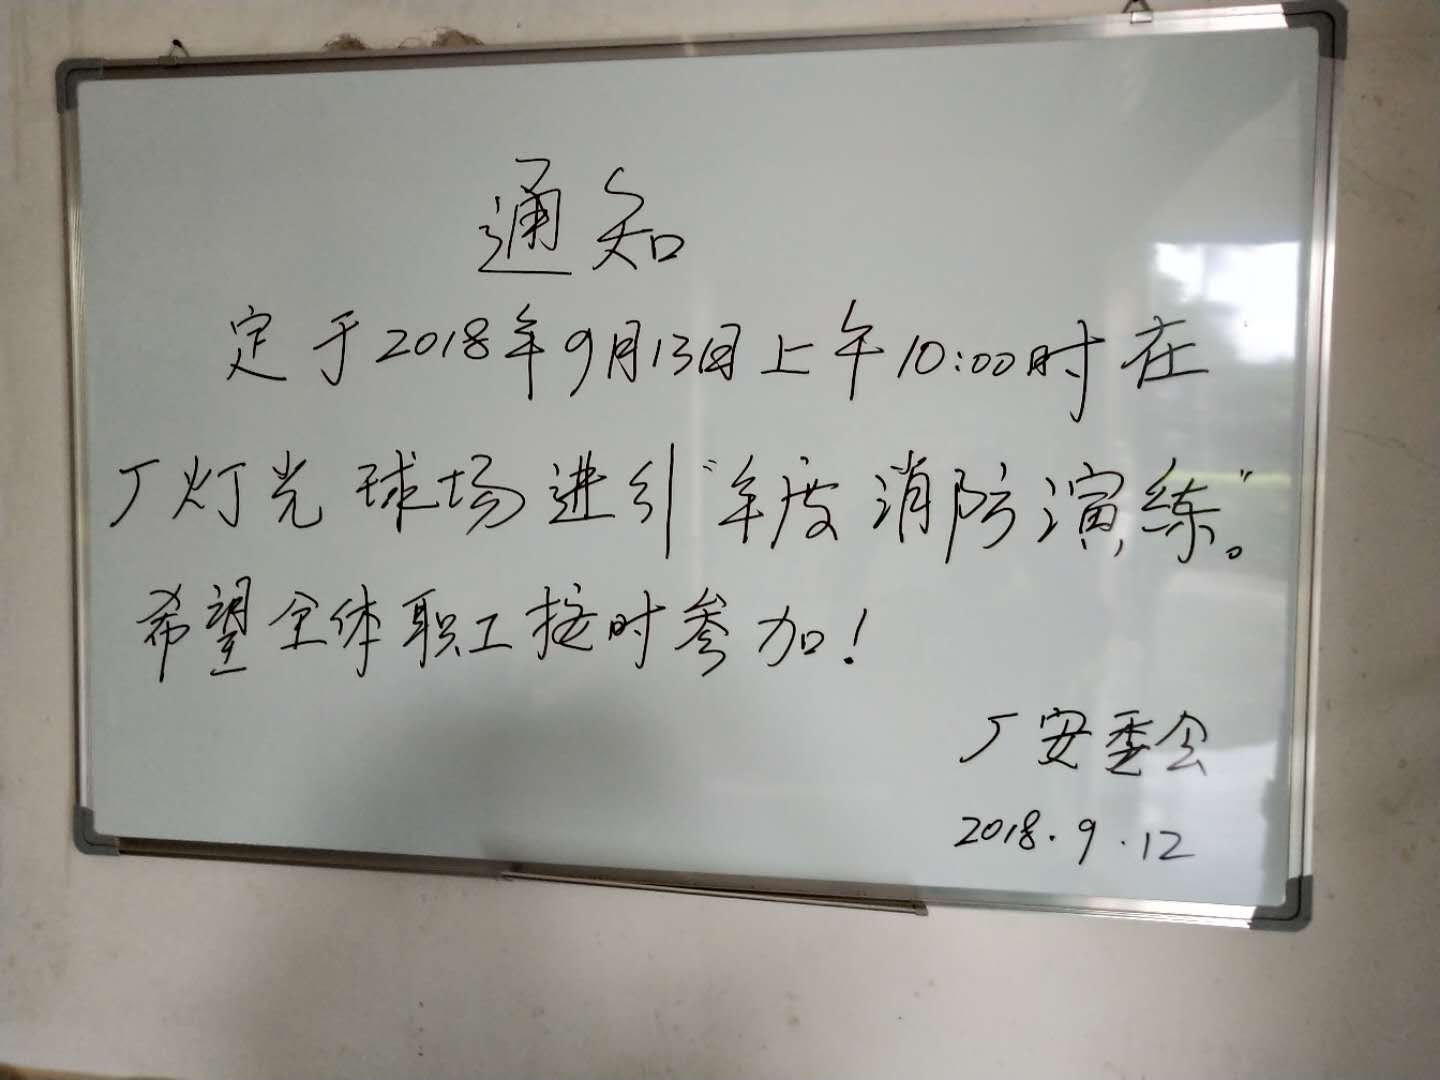 通知
定于2018年9月13日上午10:00时在
厂灯光球场进引“年度消防演练”。
希望全体职工按时参加！
厂安委会
2018.9.12